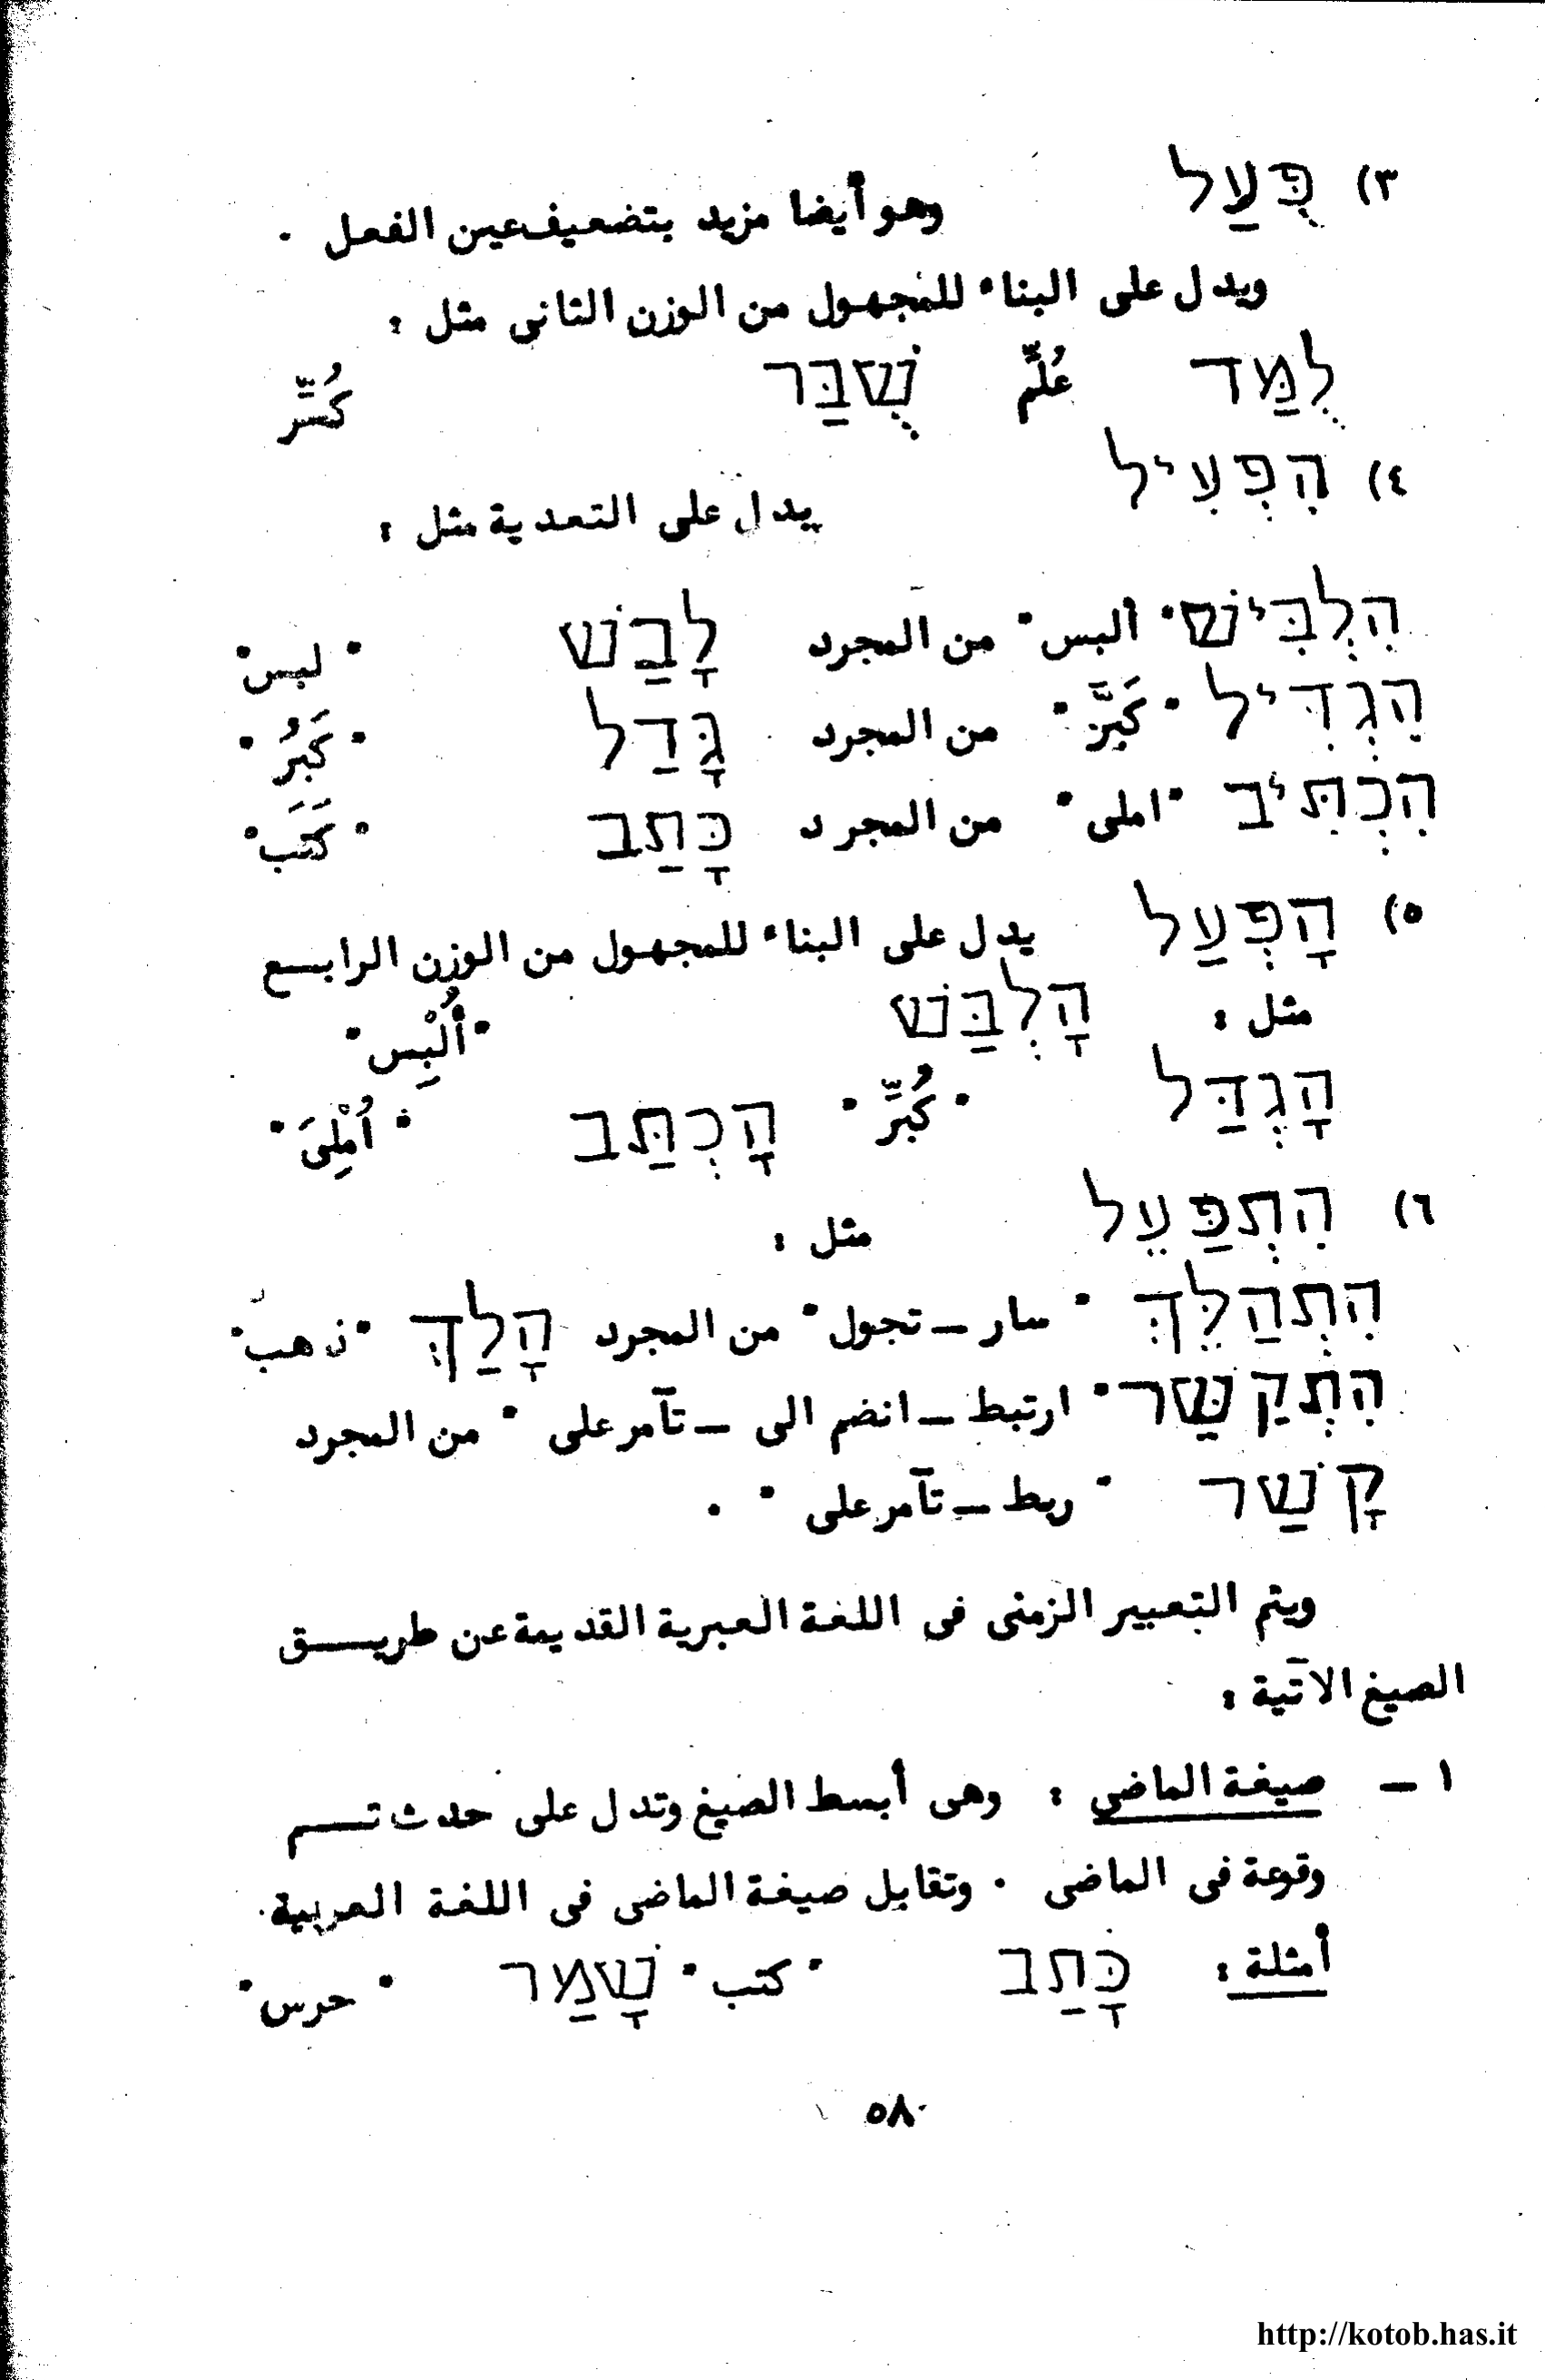 ٣) פֻּעַל وهو أيضا مزيد بتضعيف عين الفعل .
ويدل على البناء للمجهول من الوزن الثانى مثل :
לֻמַּד عُلِّم שֻׁבַּר كُسِّر
٤) הִפְעִיל يدل على التعدية مثل :
הִלְבִּישׁ " ألبس " من المجرد לָבַשׁ " لبس "
הִגְדִּיל " كَبَّر " من المجرد גָּדַל " كَبُرَ "
הִכְתִּיב " املى " من المجرد כָּתַב " كَتَب "
٥) הָפְעַל يدل على البناء للمجهول من الوزن الرابع
مثل : הָלְבַּשׁ " أُلْبِس "
הָגְדַּל " كُبِّر " הָכְתַּב " اُمْلِىَ "
٦) הִתְפַּעֵל مثل :
הִתְהַלֵּךְ " سار – تجول " من المجرد הָלַךְ " ذهب "
הִתְקַשֵּׁר " ارتبط – انضم الى – تآمر على " من المجرد
קָשַׁר " ربط – تآمر على " .
ويتم التعبير الزمنى فى اللغة العبرية القديمة عن طريق
الصيغ الآتية :
١ – صيغة الماضى : وهى أبسط الصيغ وتدل على حدث تم
وقوعة فى الماضى . وتقابل صيغة الماضى فى اللغة العربية .
أمثلة : כָּתַב " كتب " שָׁמַר " حرس "
٥٨٠
http://kotob.has.it